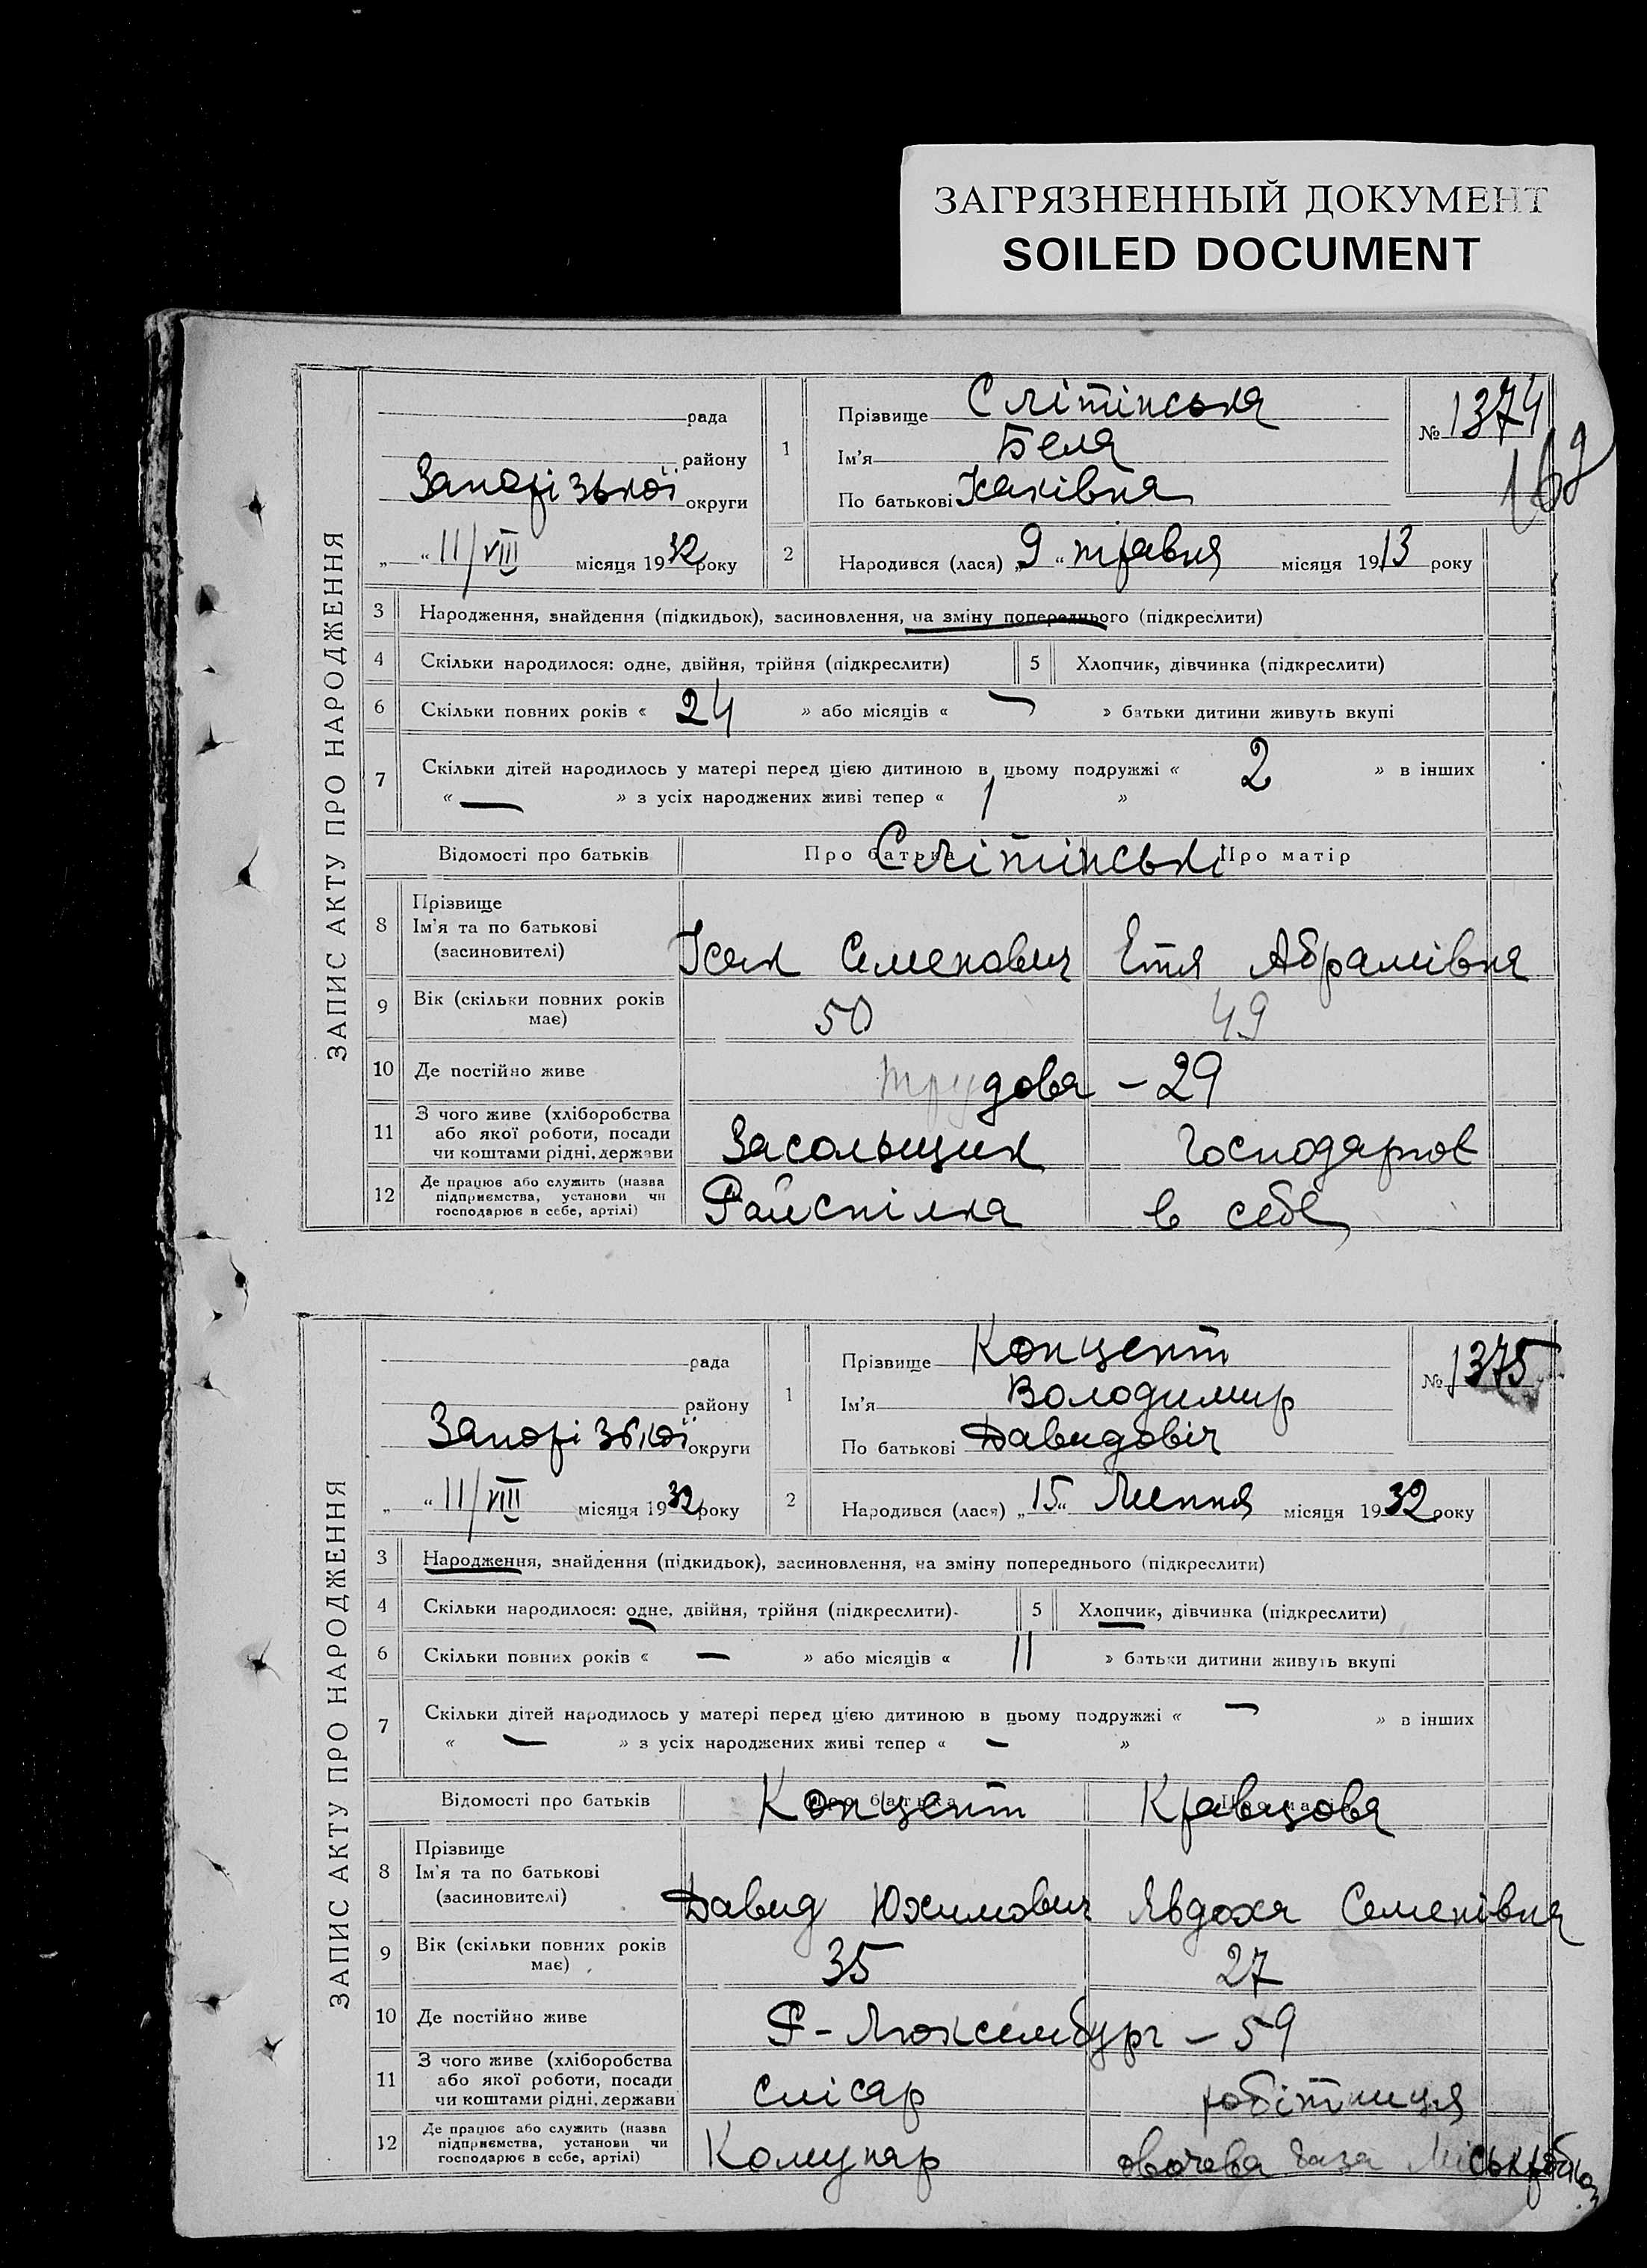 ЗАГРЯЗНЕННЫЙ ДОКУМЕНТ
SOILED DOCUMENT
ЗАПИС АКТУ ПРО НАРОДЖЕННЯ
рада
району
Запорізької округи
„ “ 11/VIII місяця 1932 року
1
Прізвище Слітінська
Ім'я Беля
По батькові Ісаківна
№ 1374
169
2
Народився (лася) „9 “ травня місяця 1913 року
3 Народження, знайдення (підкидьок), засиновлення, на зміну попереднього (підкреслити)
4 Скільки народилося: одне, двійня, трійня (підкреслити) 5 Хлопчик, дівчинка (підкреслити)
6 Скільки повних років « 24 » або місяців « — » батьки дитини живуть вкупі
7 Скільки дітей народилось у матері перед цією дитиною в цьому подружжі « 2 » в інших
« — » з усіх народжених живі тепер « 1 »
Відомості про батьків Про батька Про матір
Слітінські
8 Прізвище
Ім'я та по батькові
(засиновителі)
Ісак Семенович Етя Абрамівна
9 Вік (скільки повних років
має)
50 49
10 Де постійно живе трудова – 29
11 З чого живе (хліборобства
або якої роботи, посади
чи коштами рідні, держави
Засольщик господарює
12 Де працює або служить (назва
підприємства, установи чи
господарює в себе, артілі)
Райспілка в себе
ЗАПИС АКТУ ПРО НАРОДЖЕННЯ
рада
району
Запорізької округи
„ “ 11/VIII місяця 1932 року
1
Прізвище Концепт
Ім'я Володимир
По батькові Давидовіч
№ 1375
2
Народився (лася) „15“ Липня місяця 1932 року
3 Народження, знайдення (підкидьок), засиновлення, на зміну попереднього (підкреслити)
4 Скільки народилося: одне, двійня, трійня (підкреслити) 5 Хлопчик, дівчинка (підкреслити)
6 Скільки повних років « — » або місяців « 11 » батьки дитини живуть вкупі
7 Скільки дітей народилось у матері перед цією дитиною в цьому подружжі « — » в інших
« — » з усіх народжених живі тепер « — »
Відомості про батьків Про батька Про матір
Концепт Кравцова
8 Прізвище
Ім'я та по батькові
(засиновителі)
Давид Юхимович Явдоха Семенівна
9 Вік (скільки повних років
має)
35 27
10 Де постійно живе Р-Люксембург – 59
11 З чого живе (хліборобства
або якої роботи, посади
чи коштами рідні, держави
слісар робітниця
12 Де працює або служить (назва
підприємства, установи чи
господарює в себе, артілі)
Комунар овочева база